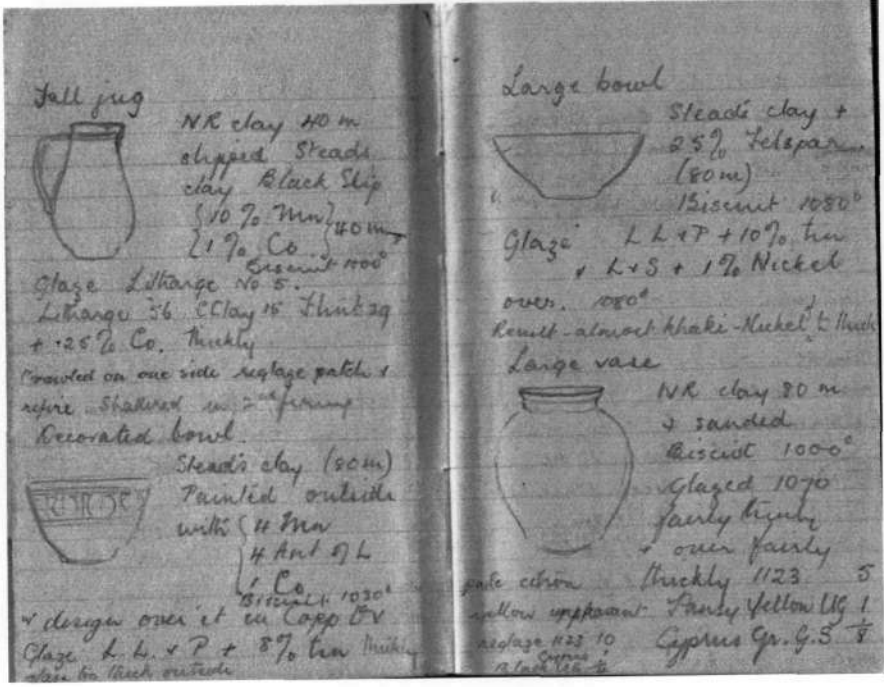 Tall jug
NR clay 40 m
slipped Steads
clay Black Slip
{10% Mn}
{1% Co.} 40 m
Biscuit 1000°
Glaze Litharge No 5.
Litharge 56 CClay 15 Flint 29
+ .25% Co. thickly
Crawled on one side reglaze patch &
refire Shattered in 2nd firing
Decorated bowl.
Steads clay (80m)
Painted outside
with { 4 Mn
4 Ant of L
1 Co
Biscuit 1030°
& design over it in Copp
Glaze L L. & P + 8% tin thickly
too thick outside
Large bowl
Steads clay +
25% Felspar
(80m)
Biscuit 1080°
Glaze L L & P + 10% tin
& L & S + 1% Nickel
over. 1080°
Result - almost khaki - Nickel thick
Large vase
NR clay 80 m
& sanded
Biscuit 1000°
Glazed 1070
fairly thinly
& over fairly
thickly 1123 5
Yellow UG 1
Cyprus Gr. G.S 1/8
pale citron
yellow
reglaze 1123 10
Cyprus